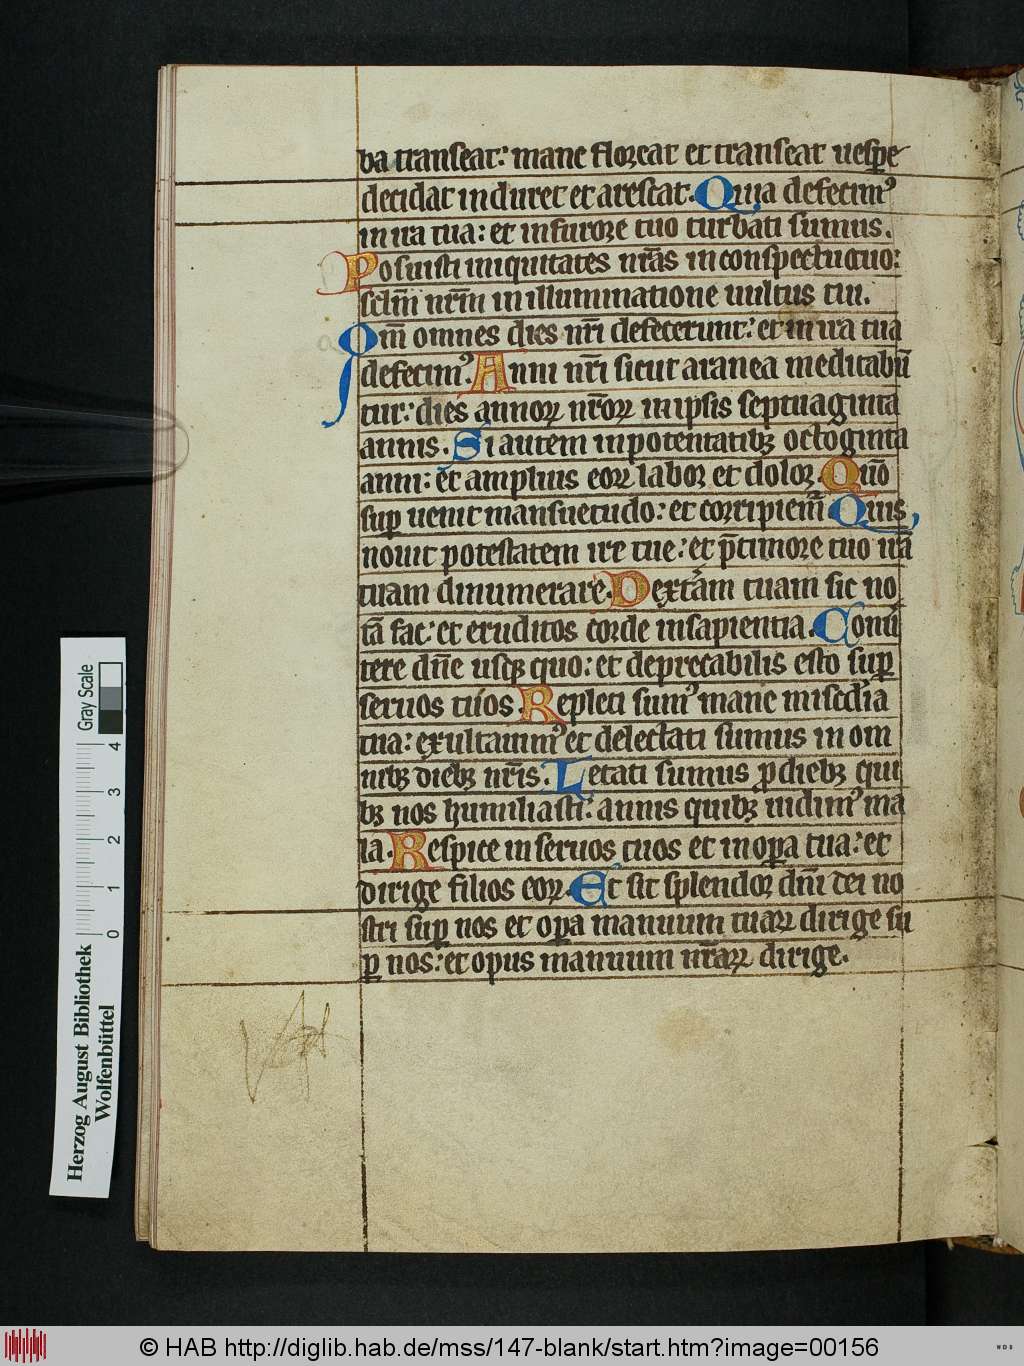 ba tranſeat: mane floreat et tranſeat ueſpe
decidat induret et areſcat. Quia defecimꝰ
in ira tua: et in furore tuo turbati ſumus.
Poſuiſti iniquitates nr̄as in conſpectu tuo:
ſclm̄ nrm̄ in illuminatione uultus tui.
Qm̄ omnes dies nr̄i defecerunt: et in ira tua
defecimꝰ. Anni nr̄i ſicut aranea meditabū
tur: dies annoꝝ nr̄oꝝ in ipſis ſeptuaginta
annis. Si autem in potentatibꝫ octoginta
anni: et amplius eoꝝ labor et dolor. Qm̄
ſuꝑ uenit manſuetudo: et corripiem̄. Quis
nouit poteſtatem ire tue: et p̄ timore tuo irā
tuam dinumerare. Dextām tuam ſic no
tā fac: et eruditos corde in ſapientia. Conū
tere dn̄e uſqꝫ quo: et deprecabilis eſto ſuꝑ
ſeruos tuos Repleti ſumꝰ mane miſcd'ia
tua: exultauimꝰ et delectati ſumus in om
nibꝫ diebꝫ nr̄is. Letati ſumus ꝓ diebꝫ qui
bꝫ nos humiliaſti: annis quibꝫ uidimꝰ ma
la. Reſpice in ſeruos tuos et in oꝑa tua: et
dirige filios eoꝝ. Et ſit ſplendor dn̄i dei no
ſtri ſuꝑ nos et oꝑa manuum tuaꝝ dirige ſu
ꝑ nos: et opus manuum nr̄aꝝ dirige.
Gray Scale
0 1 2 3 4
Herzog August Bibliothek
Wolfenbüttel
© HAB http://diglib.hab.de/mss/147-blank/start.htm?image=00156